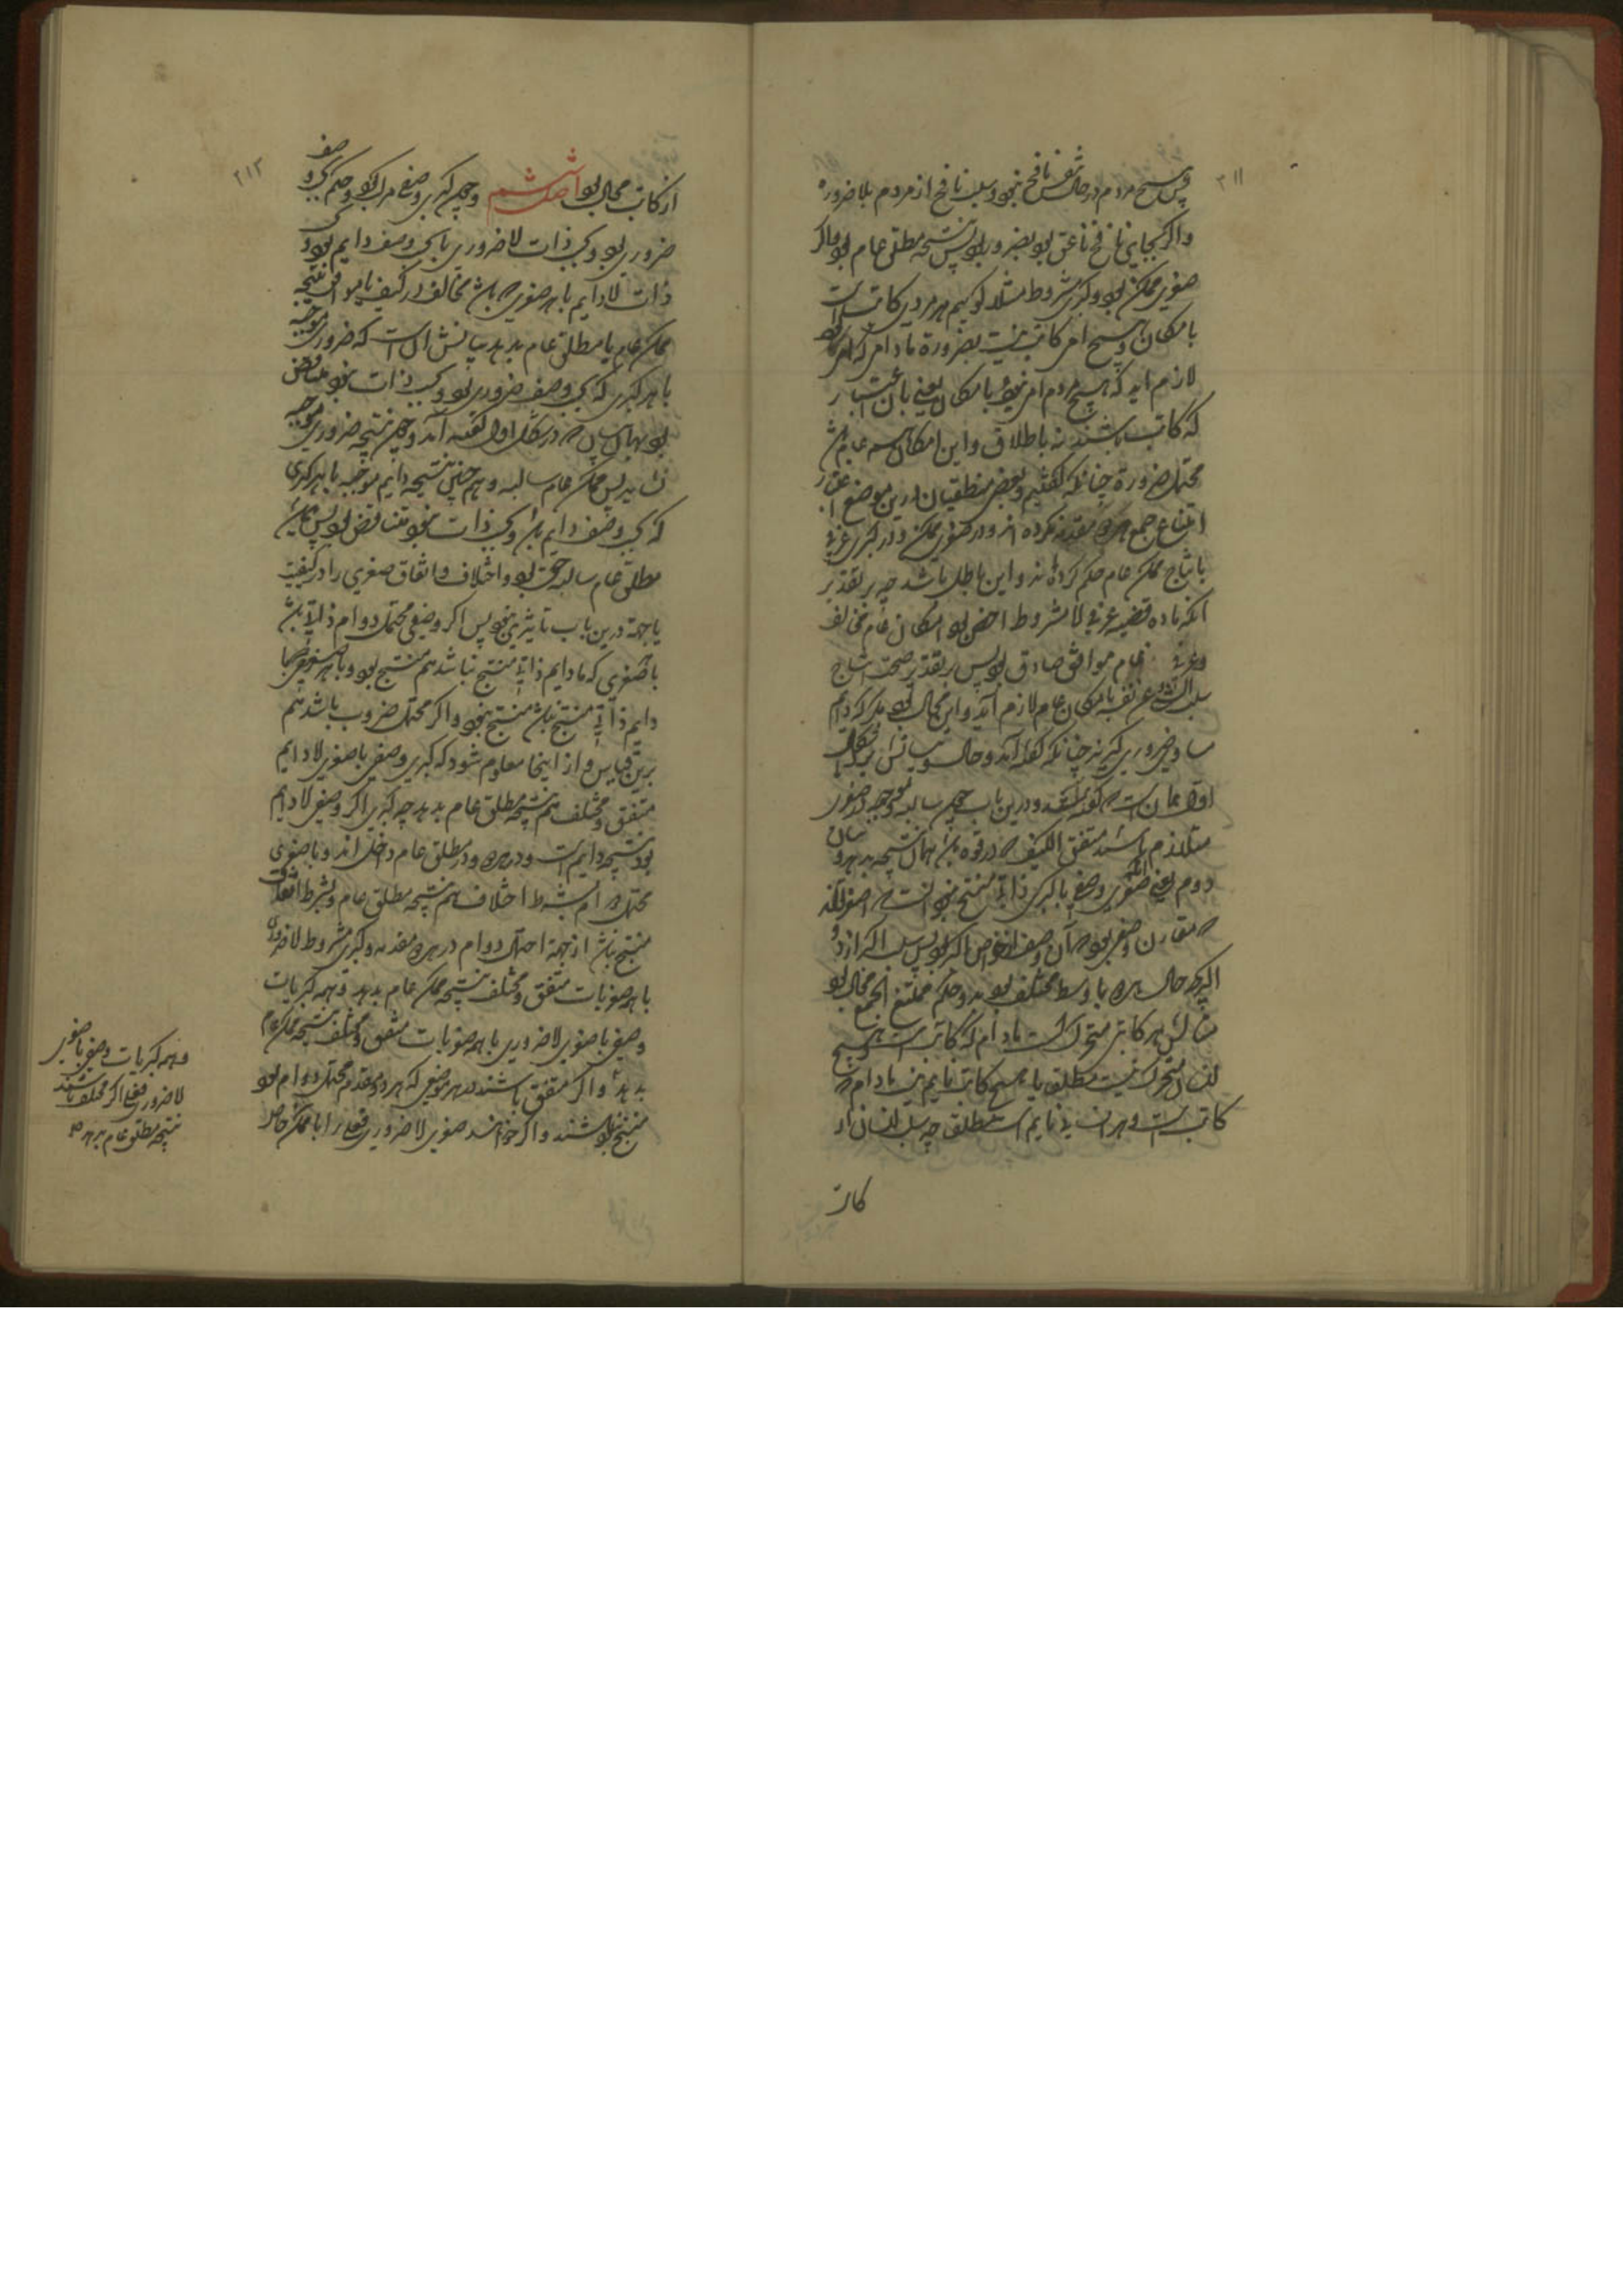 ۲۱۱
پس هیچ مردم در حال تنفس نافخ نبود و سلب نافخ از مردم بلا ضرورة
واگر بجای نافخ ناعق بود بضرورة بود پس نتیجه مطلق عام بود و اگر
صغری ممکن بود و کبری مشروط مثلا گوئیم هر مردی کاتب است
بامکان و هیچ امی کاتب نیست بضرورة مادام که امی
لازم آید که هیچ مردم امی نبود بامکان یعنی بآن اعتبار
که کاتب باشند نه باطلاق و این امکان عام باشد
محتمل ضرورة چنانکه گفتیم و بعضی منطقیان درین موضع اعتبار
امتناع جمع هر دو مقدمه نکرده اند و در صغری ممکن و در کبری عرفی
بانتاج ممکن عام حکم کرده اند و این باطل باشد چه بر تقدیر
آنکه ماده قضیه عرفی لا مشروط اخص بود امکان عام مخالف
و عرفی عام موافق صادق بود پس بر تقدیر صحت انتاج
سلب الشیء عن نفسه بامکان عام لازم آید و این محال بود مگر که دایم
مساوی ضروری گیرند چنانکه گفته آمد و حال و بیانش بشکل
اول همان است که گفته شد و درین باب چون سالبه و موجبه وصفی
متلازم باشند متفق الکیف در قوه باشد همان نتیجه بدهد و بیان
دوم یعنی صغری وصفی با کبری ذاتی منتج نبود الا است که اصغر آنکه
که مقارن وصفی بود و آن وصف از خواص اکبر بود پس سلب اکبر ازو
اگرچه حال هر دو با اوسط مختلف بود و حکم ممتنع الجمع محال بود
مثالش هر کاتبی متحرک است مادام که کاتب است و هیچ
انسان متحرک نیست مطلق یا هیچ کاتب نایم نیست مادام که
کاتب است و هر انسانی نایم است مطلق چه سلب انسان از
کاتب
۲۱۲
از کاتب محال بود اصل ششم و چون کبری وصفی مرکب بود و حکم بحسب وصف
ضروری بود و بحسب ذات لا ضروری یا بحسب وصف دایم بود و بحسب
ذات لا دایم با هر صغری که باشد مخالف در کیف یا موافق نتیجه
ممکن عام یا مطلق عام بدهد بیانش آن است که ضروری موجبه
با هر کبری که بحسب وصف ضروری بود و بحسب ذات نبود متناقض
بود بهمان بیان که در شکل اول گفته آمد و چون نتیجه ضروری موجبه
نشاید پس ممکن عام سالبه و هم چنین نتیجه دایم موجبه با هر کبری
که بحسب وصف دایم باشد و بحسب ذات نبود متناقض بود پس نتیجه
مطلق عام سالبه حق بود و اختلاف و اتفاق صغری را در کیفیت
یا جهة درین باب تاثیری نبود پس اگر وصفی محتمل دوام ذاتی باشد
با صغری که مادایم ذاتی منتج نباشد هم منتج نبود و با هر صغری که با
دایم ذاتی منتج باشد منتج نبود و اگر محتمل ضرورت باشد هم
برین قیاس و از اینجا معلوم شود که کبری وصفی با صغری لا دایم
متفق و مختلف هم نتیجه مطلق عام بدهد چه کبری اگر وصفی لا دایم
بود نتیجه دایم است و در هر دو در مطلق عام داخل اند و با صغری
محتمل دوام بشرط اختلاف هم نتیجه مطلق عام و بشرط اتفاق
منتج نباشد از جهة احتمال دوام در هر دو مقدمه و کبری مشروط لا ضروری
با هر صغریات متفق و مختلف نتیجه ممکن عام بدهد و همه کبریات
وصفی با صغری لا ضروری یا هر صغریات متفق و مختلف نتیجه ممکن عام
بدهد و اگر متفق باشند در هر موضعی که هر دو مقدمه محتمل دوام بود
منتج نباشند و اگر خواهند صغری لا ضروری فعلی را با ممکن خاص
و همه کبریات وصفی با صغری
لا ضروری فعلی اگر مختلف باشند
نتیجه مطلق عام بدهد